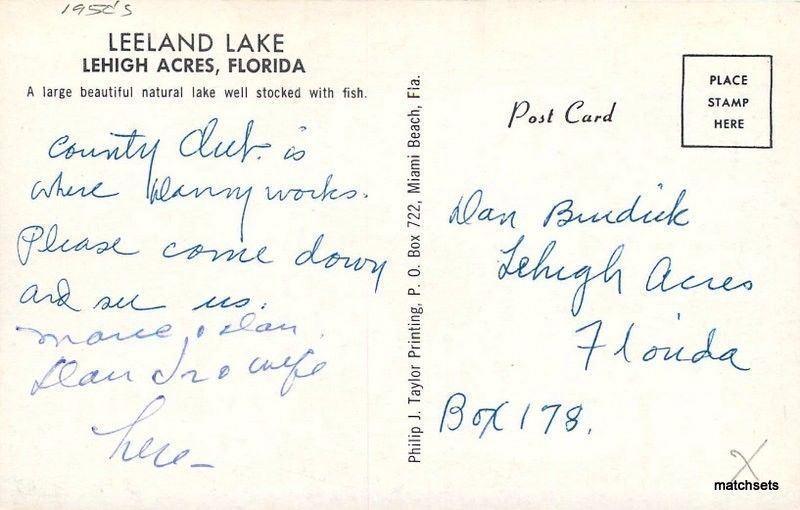 1950's
LEELAND LAKE
LEHIGH ACRES, FLORIDA
A large beautiful natural lake well stocked with fish.
County Club is
where Danny works.
Please come down
and see us.
Marie & Dan.
Dan Jr & wife
here—
Philip J. Taylor Printing, P. O. Box 722, Miami Beach, Fla.
Post Card
PLACE
STAMP
HERE
Dan Burdick
Lehigh Acres
Florida
Box 178.
X
matchsets